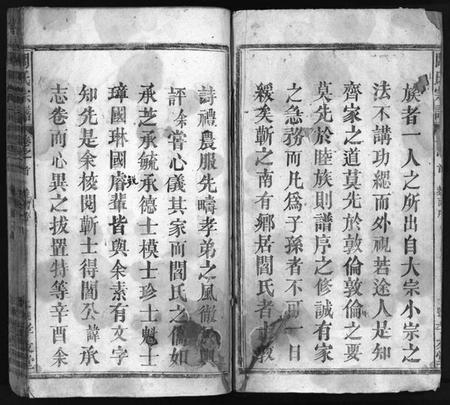 族者一人之所出自大宗小宗之
法不講功緦而外視若途人是知
齊家之道莫先於敦倫敦倫之要
莫先於睦族則譜序之修誠有家
之急務而凡為子孫者不可一日
緩矣蘄之南有鄉居閻氏者士敦
詩禮農服先疇孝弟之風徹
評余嘗心儀其家而閻氏之儒如
承芝承毓承德士模士珍士魁士
璋國琳國璿輩皆與余素有文字
知先是余校閱蘄士得閻公諱承
志卷而心異之拔置特等辛酉余